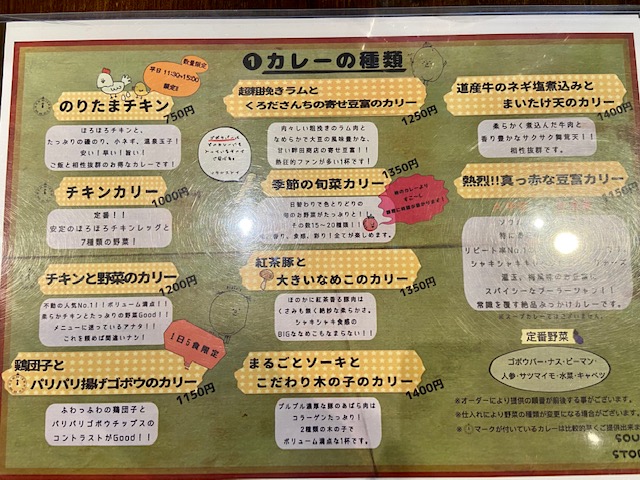 ❶カレーの種類
数量限定
平日 11:30~15:00
限定!!
のりたまチキン
750円
ほろほろチキンと、
たっぷりの磯のり、小ネギ、温泉玉子!
安い!早い!旨い!
ご飯と相性抜群のお得なカレーです!
チキンカリー
1000円
定番!!
安定のほろほろチキンレッグと
7種類の野菜!
チキンと野菜のカリー
1200円
不動の人気No.1!!ボリューム満点!!
柔らかチキンとたっぷりの野菜Good!!
メニューに迷っているアナタ!!
これを頼めば間違いナシ!
1日5食限定
鶏団子と
パリパリ揚げゴボウのカリー
1150円
ふわっふわの鶏団子と
パリパリゴボウチップスの
コントラストがGood!!
超粗挽きラムと
くろださんちの寄せ豆富のカリー
1250円
肉々しい粗挽きのラム肉と
なめらかで大豆の風味豊かな、
甘い野田商店の寄せ豆富!!
熱狂的ファンが多い1杯です!
季節の旬菜カリー
1350円
日替わりで色とりどりの
旬のお野菜がたっぷりと!
その数15~20種類!!
香り、食感、彩り!全てが楽しめます。
他のカレーより
すこーし
提供に時間が掛かります!
紅茶豚と
大きいなめこのカリー
1350円
ほのかに紅茶香る豚肉は
くさみも無く絶妙な柔らかさ。
シャキシャキ食感の
BIGななめこもたまらない!!
まるごとソーキと
こだわり木の子のカリー
1400円
プルプル濃厚な豚のあばら肉は
コラーゲンたっぷり!
2種類の木の子で
ボリューム満点な1杯です。
道産牛のネギ塩煮込みと
まいたけ天のカリー
1400円
柔らかく煮込んだ牛肉と
香り豊かなサクサク舞茸天!!
相性抜群です。
熱烈!!真っ赤な豆富カリー
1150円
リピート率No.1
シャキシャキも
スパイシーなプーラージャン!!
常識を覆す絶品みっかけカレーです。
※スープカレーではございません。
定番野菜
ゴボウバー・ナス・ピーマン・
人参・サツマイモ・水菜・キャベツ
※オーダーにより提供の順番が前後する事がございます。
※仕入れにより野菜の種類が変更になる場合がございます。
※マークが付いているカレーは比較的早くご提供出来ま